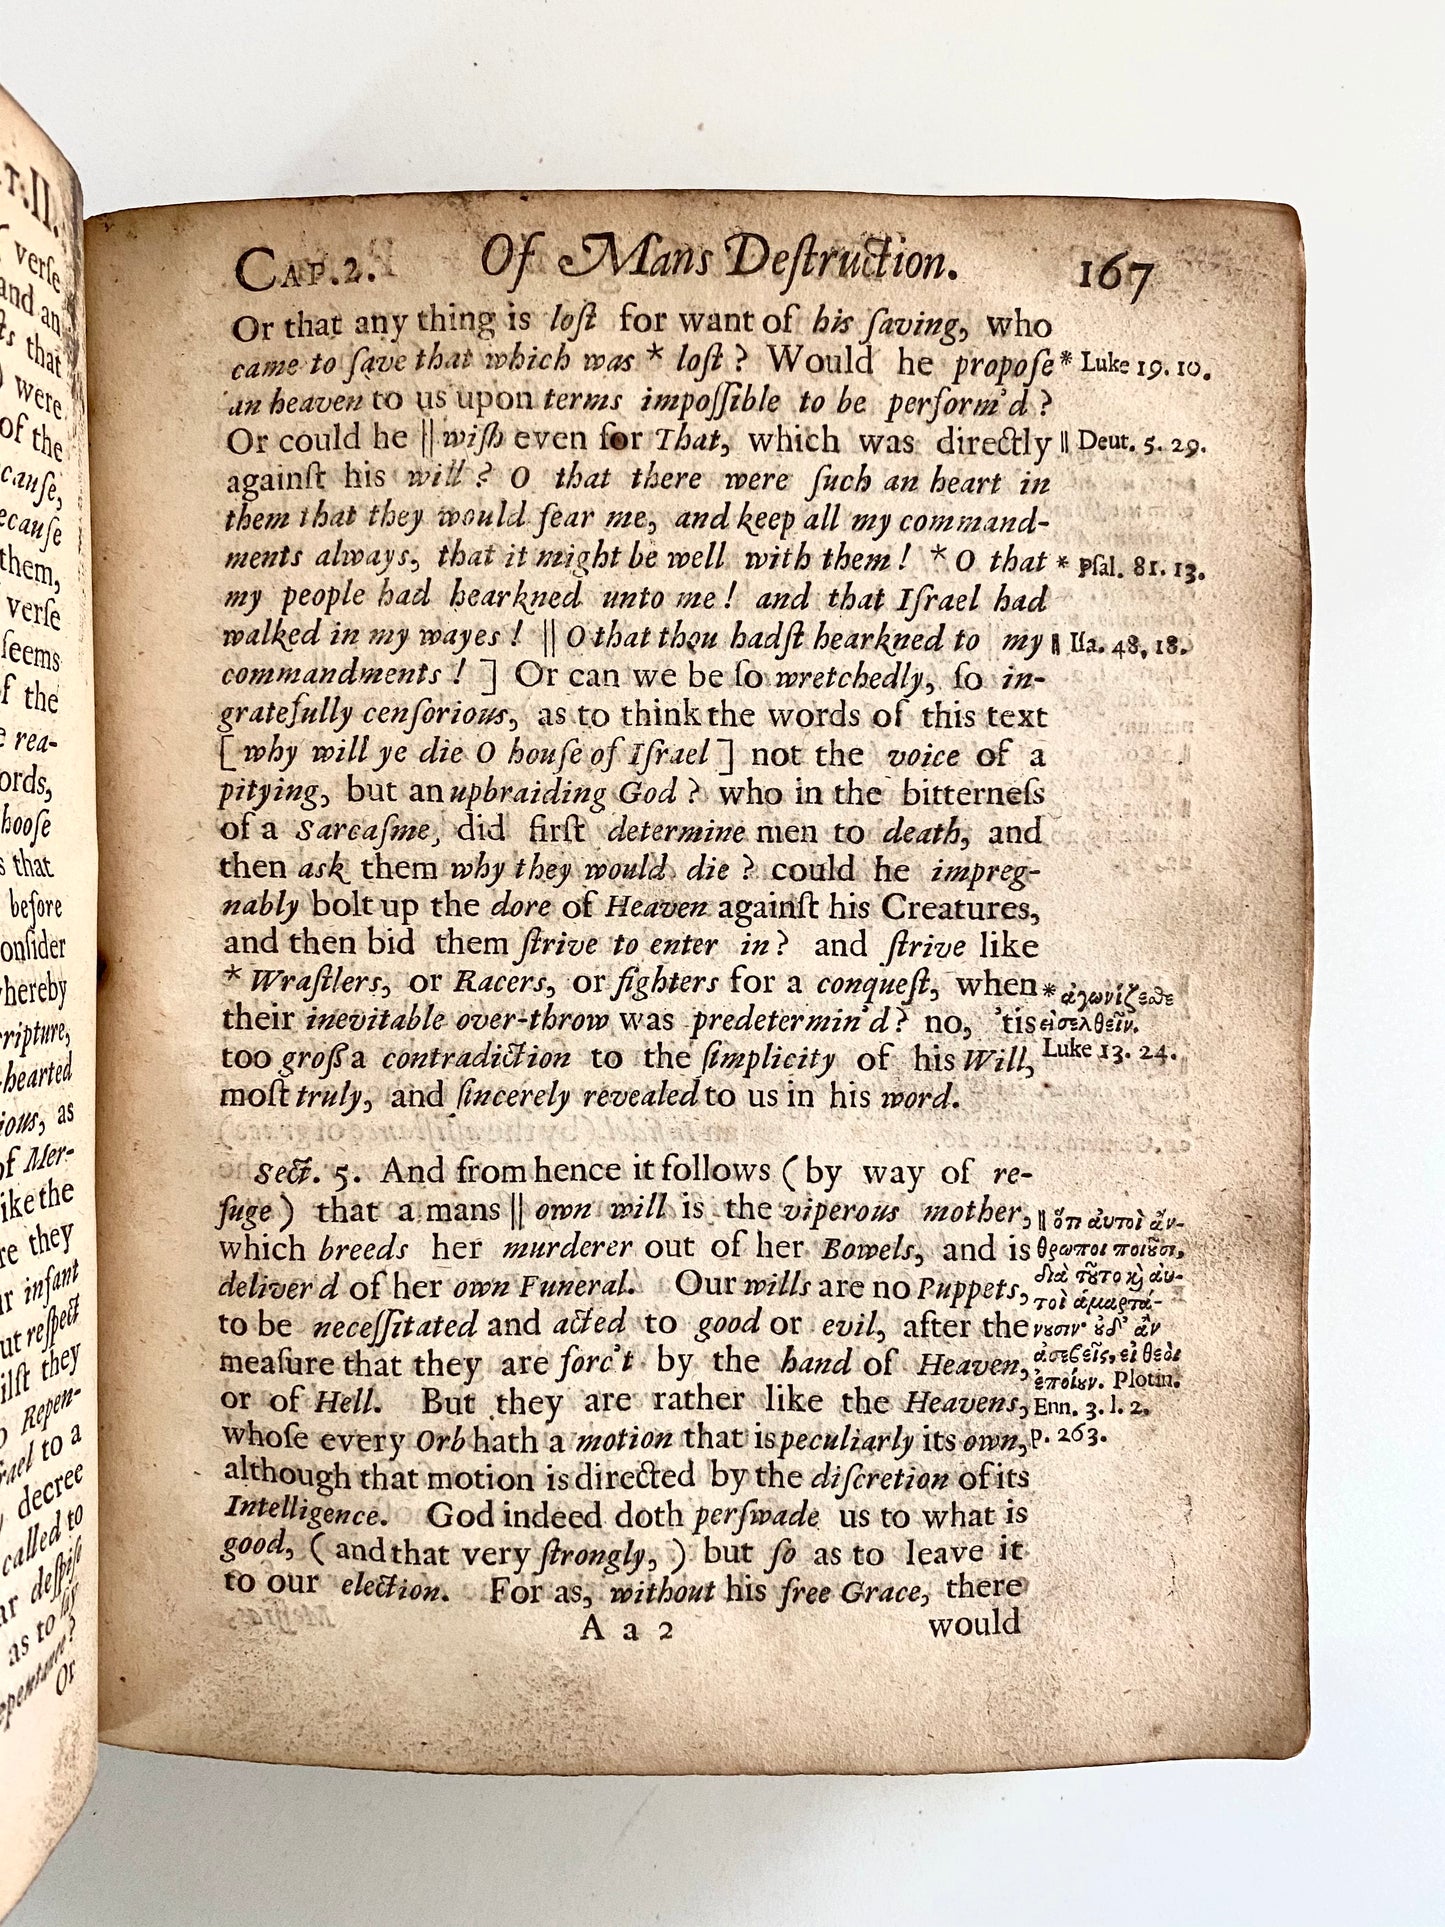 T:II.
verſe
and an
ts that
) were
of the
cauſe,
ecauſe
them,
verſe
ſeems
of the
e rea-
ords,
hooſe
s that
before
onſider
whereby
cripture,
-hearted
ious, as
of Mer-
like the
re they
ur infant
ut reſpect
ilſt they
o Repen-
rael to a
y decree
called to
ar deſpiſe
as to ſay
epentance?
Or
CAP.2. Of Mans Deſtruction. 167
Or that any thing is loſt for want of his ſaving, who
came to ſave that which was * loſt ? Would he propoſe
an heaven to us upon terms impoſſible to be perform'd ?
Or could he || wiſh even for That, which was directly
againſt his will ? O that there were ſuch an heart in
them that they would fear me, and keep all my command-
ments always, that it might be well with them ! * O that
my people had hearkned unto me ! and that Iſrael had
walked in my wayes ! || O that thou hadſt hearkned to my
commandments ! ] Or can we be ſo wretchedly, ſo in-
gratefully cenſorious, as to think the words of this text
[ why will ye die O houſe of Iſrael ] not the voice of a
pitying, but an upbraiding God ? who in the bitterneſs
of a Sarcaſme, did firſt determine men to death, and
then ask them why they would die ? could he impreg-
nably bolt up the dore of Heaven againſt his Creatures,
and then bid them ſtrive to enter in ? and ſtrive like
* Wraſtlers, or Racers, or fighters for a conqueſt, when
their inevitable over-throw was predetermin'd ? no, 'tis
too groſs a contradiction to the ſimplicity of his Will,
moſt truly, and ſincerely revealed to us in his word.
Sect. 5. And from hence it follows ( by way of re-
fuge ) that a mans || own will is the viperous mother,
which breeds her murderer out of her Bowels, and is
deliver'd of her own Funeral. Our wills are no Puppets,
to be neceſſitated and acted to good or evil, after the
meaſure that they are forc't by the hand of Heaven,
or of Hell. But they are rather like the Heavens,
whoſe every Orb hath a motion that is peculiarly its own,
although that motion is directed by the diſcretion of its
Intelligence. God indeed doth perſwade us to what is
good, ( and that very ſtrongly, ) but ſo as to leave it
to our election. For as, without his free Grace, there
A a 2 would
* Luke 19. 10.
|| Deut. 5. 29.
* Pſal. 81. 13.
|| Iſa. 48, 18.
* ἀγωνίζεσθε
εἰσελθεῖν.
Luke 13. 24.
|| ὅτι αὐτοὶ ἄν-
θρωποι ποιοῦσι,
διὰ τοῦτο καὶ αὐ-
τοὶ ἁμαρτά-
νουσιν· οὐδ' ἂν
ἀσεβεῖς, εἰ θεοὶ
ἐποίουν. Plotin.
Enn. 3. l. 2.
p. 263.